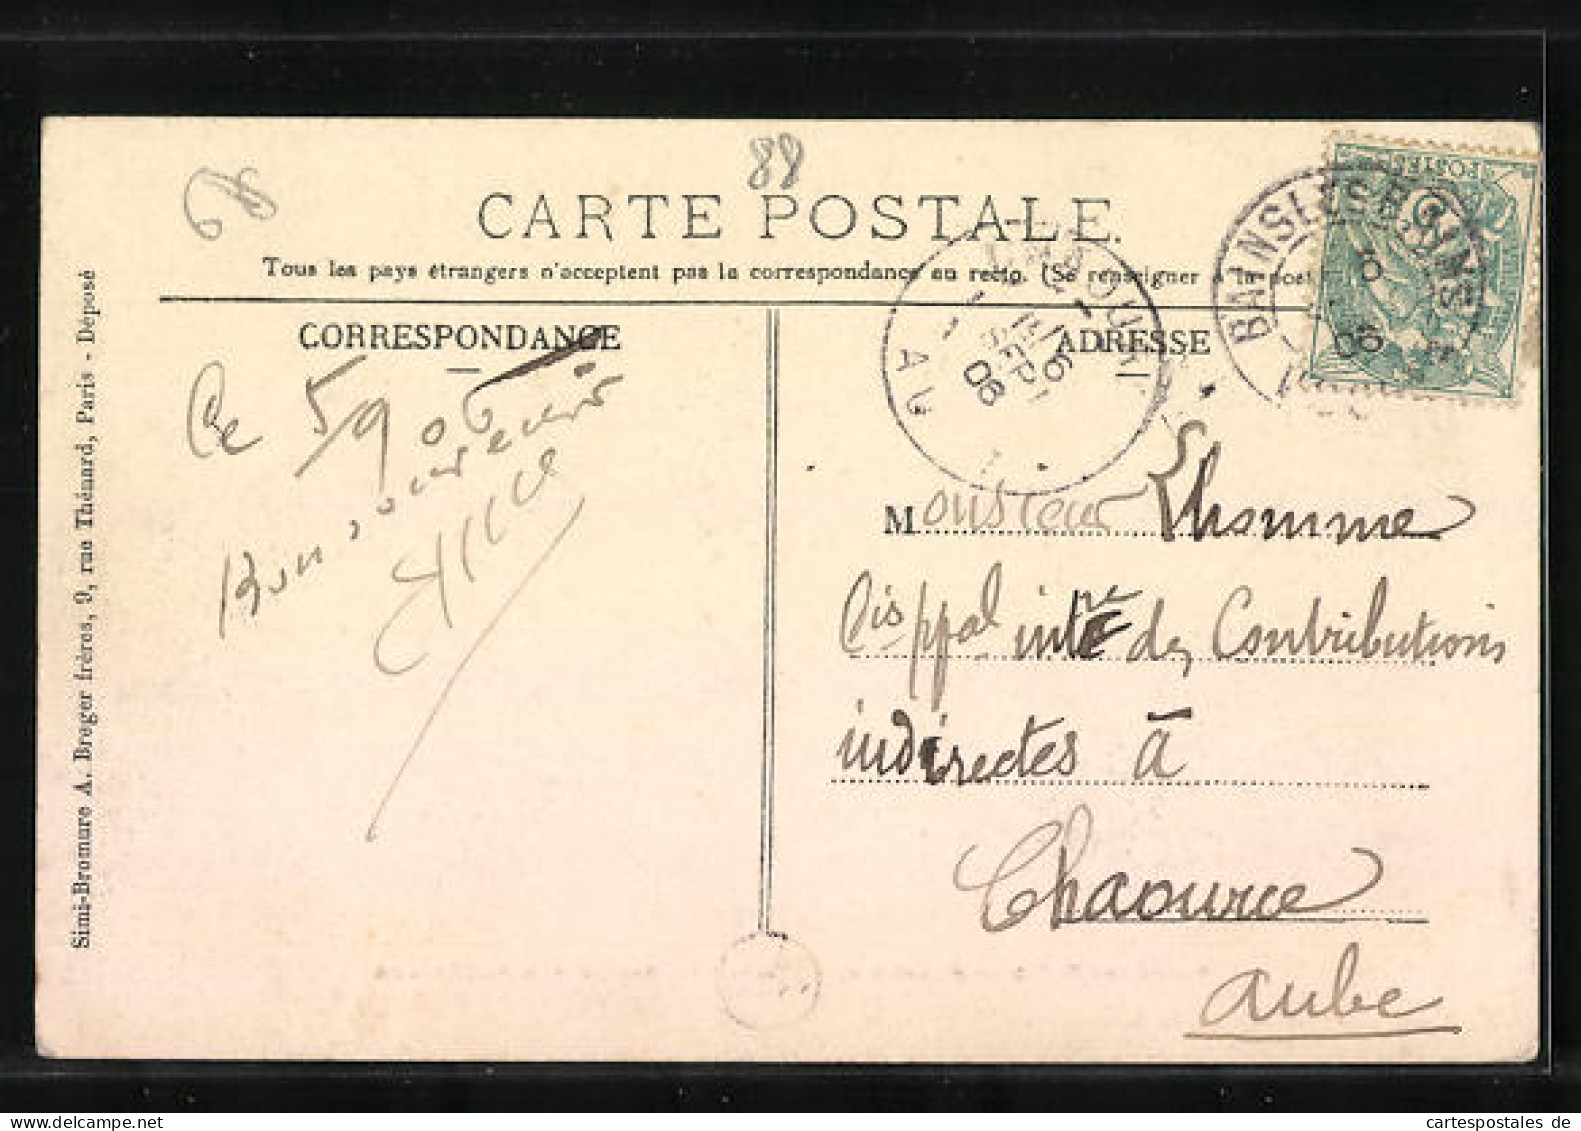 68
88
CARTE POSTALE.
Tous les pays étrangers n'acceptent pas la correspondance au recto. (Se renseigner à la post
CORRESPONDANCE
ADRESSE
BAINS LES BAINS
6
06
6
SEPT
06
AU
POSTES
Ce 5/9 06
Bon souvenir
Monsieur Lhomme
Cis ppal intre des Contributions
indirectes à
Chaource
Aube
Simi-Bromure A. Breger frères, 9, rue Thénard, Paris - Déposé
cartespostales de